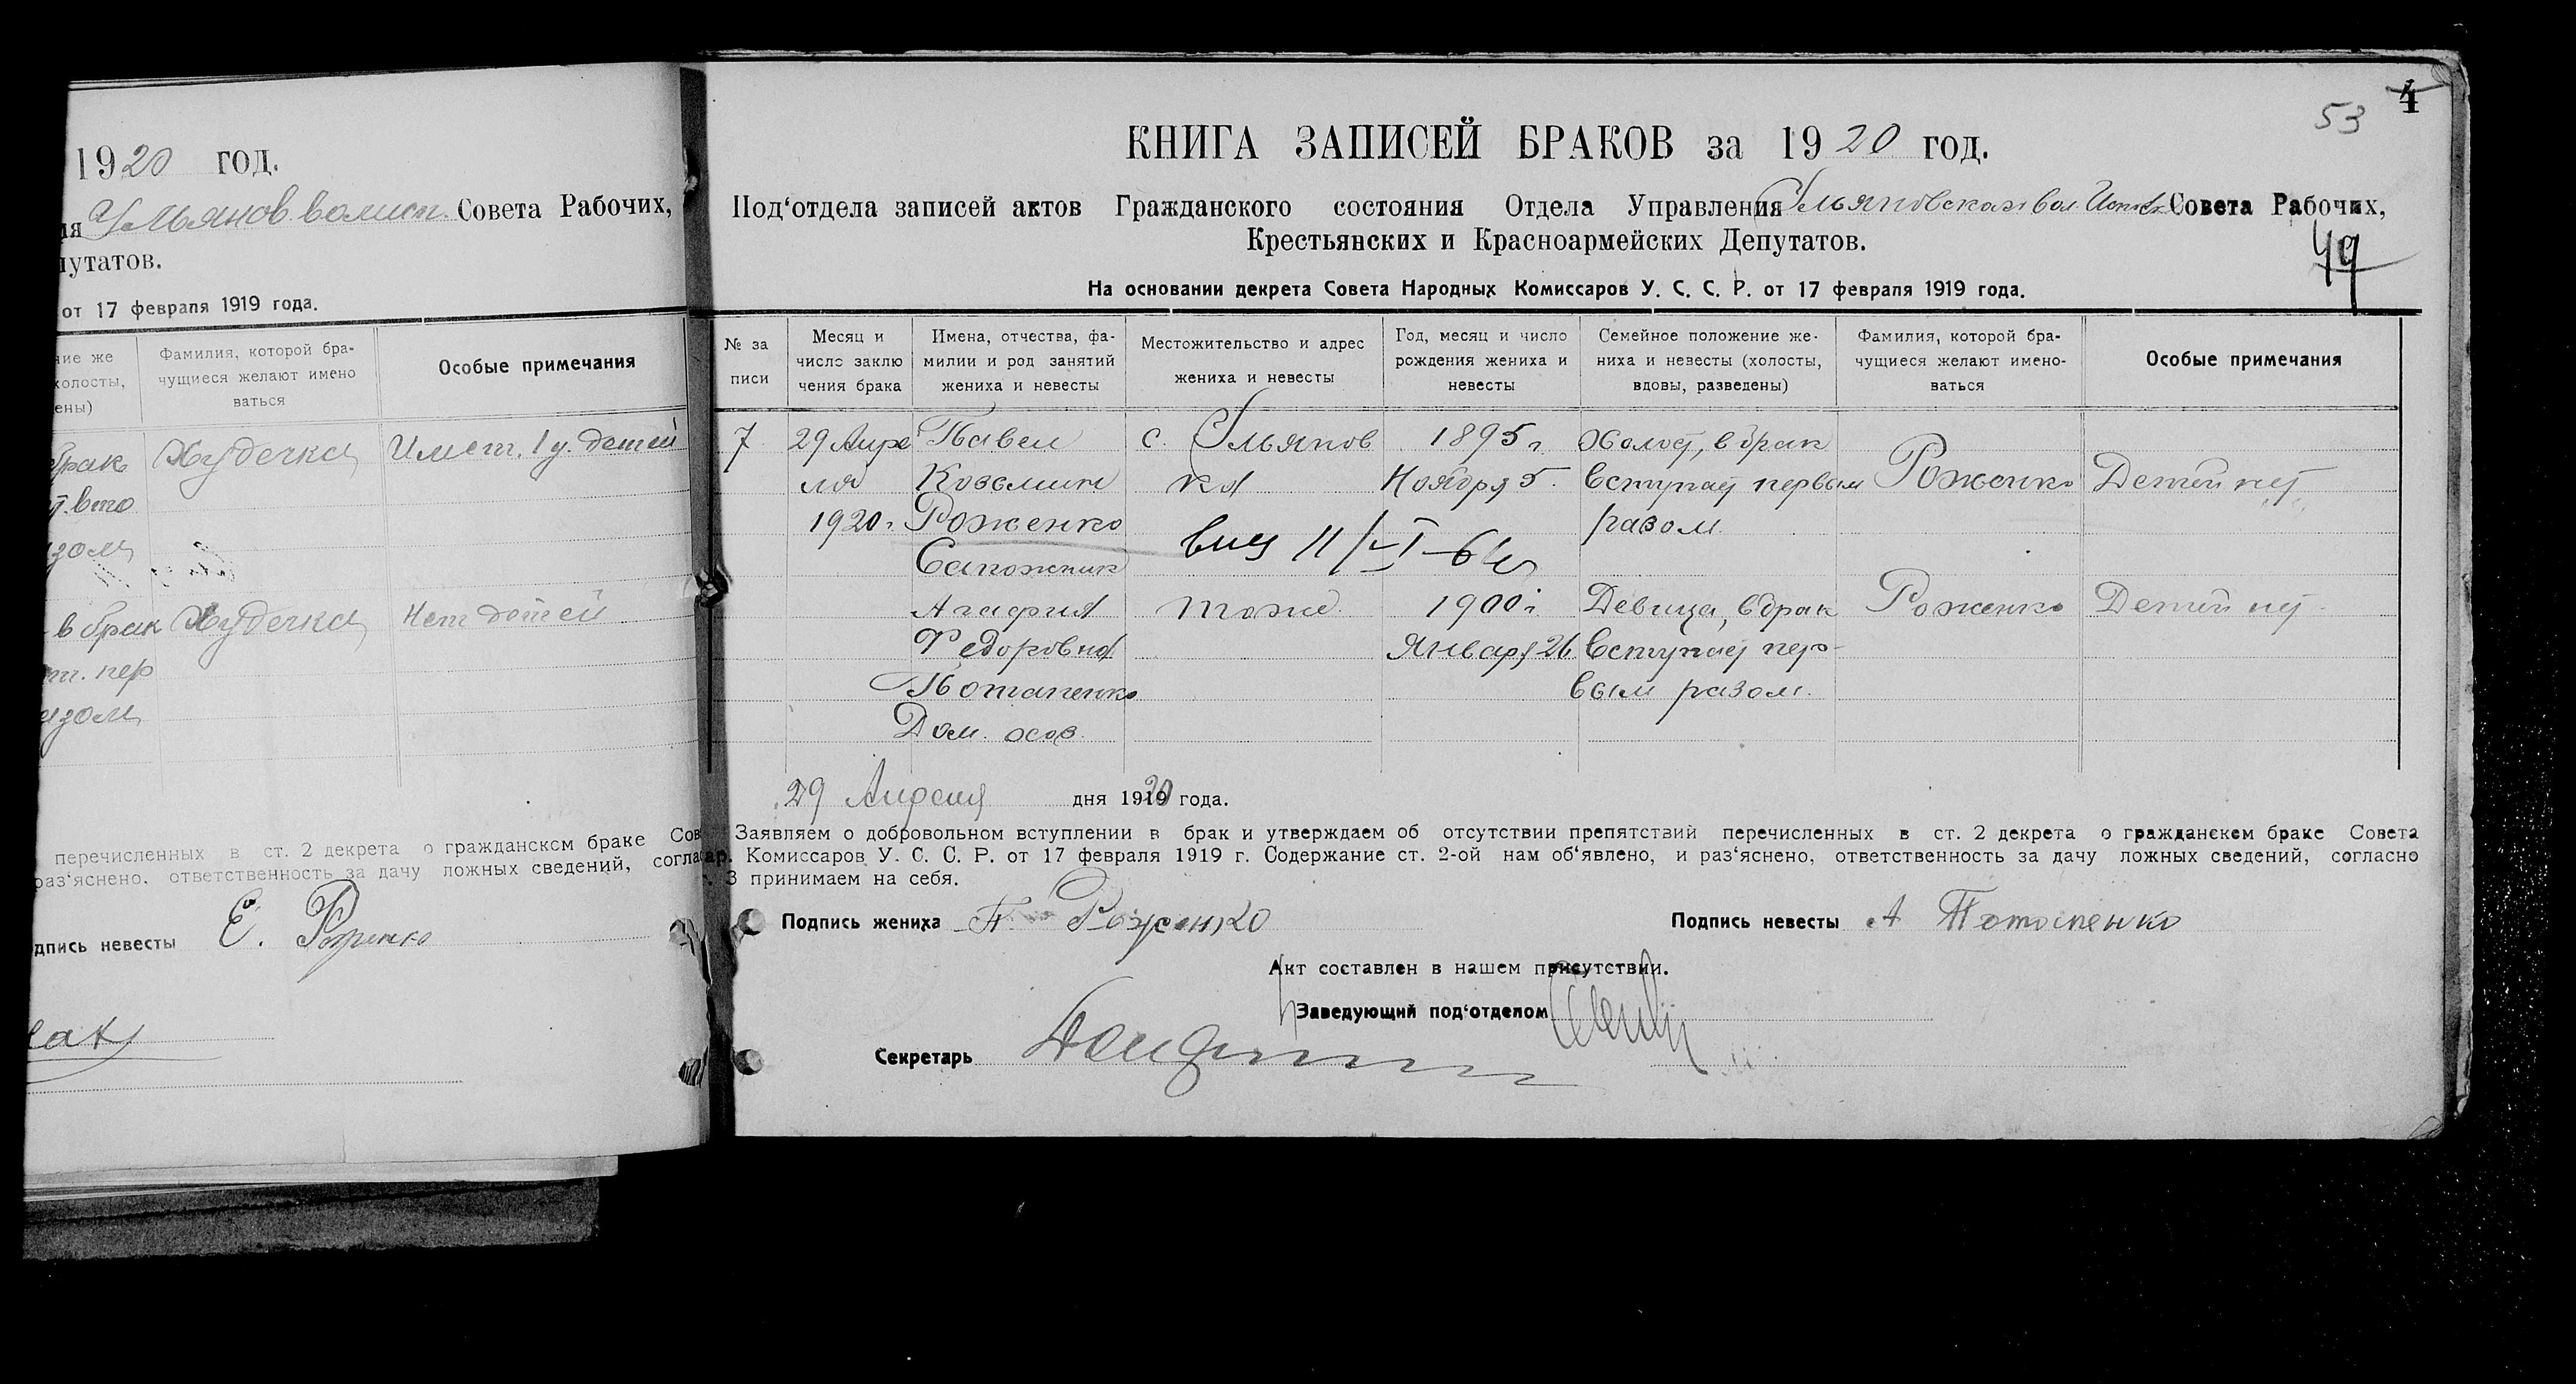 1920 год.
Ульянов. волисп. Совета Рабочих,
путатов.
от 17 февраля 1919 года.
ние же
холосты,
ены)
Фамилия, которой бра-
чущиеся желают имено
ваться
Особые примечания
брак Худечка Имет. 1 у. детей
т. вто
азом
в брак Худечка Нет детей
т. пер
азом
перечисленных в ст. 2 декрета о гражданском браке Сов
раз‘яснено, ответственность за дачу ложных сведений, согла
дпись невесты Е. Роженко
53 4
КНИГА ЗАПИСЕЙ БРАКОВ за 1920 год.
Под‘отдела записей актов Гражданского состояния Отдела Управления Ульяновская вол. Совета Рабочих,
Крестьянских и Красноармейских Депутатов.
49
На основании декрета Совета Народных Комиссаров У. С. С. Р. от 17 февраля 1919 года.
№ за
писи
Месяц и
число заклю
чения брака
Имена, отчества, фа-
милии и род занятий
жениха и невесты
Местожительство и адрес
жениха и невесты
Год, месяц и число
рождения жениха и
невесты
Семейное положение же-
ниха и невесты (холосты,
вдовы, разведены)
Фамилия, которой бра-
чущиеся желают имено-
ваться
Особые примечания
7 29 Апре Павел с. Ульянов 1895 г. Холост, в брак
ля Козьмич ка Ноября 5. вступает первым Роженко Детей нет
1920 г. Роженко разом
Сапожник
Агафия тоже 1900 г. Девица, в брак Роженко Детей нет
Федоровна Января 26 вступает пер-
Потапенко вым разом.
Дом. хоз.
29 Апреля дня 1920 года.
Заявляем о добровольном вступлении в брак и утверждаем об отсутствии препятствий перечисленных в ст. 2 декрета о гражданском браке Совета
ар. Комиссаров У. С. С. Р. от 17 февраля 1919 г. Содержание ст. 2-ой нам об‘явлено, и раз‘яснено, ответственность за дачу ложных сведений, согласно
. 3 принимаем на себя.
Подпись жениха П. Роженко Подпись невесты А Потопенко
Акт составлен в нашем присутствии.
Заведующий под‘отделом
Секретарь